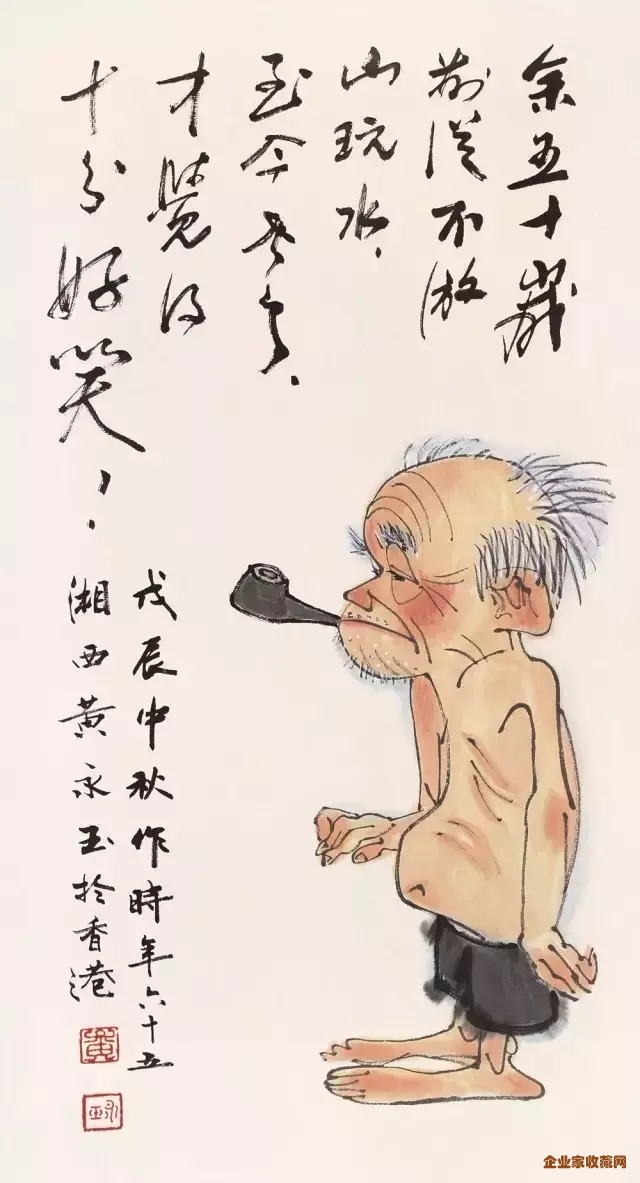 余五十歲
前從不游
山玩水、
至今老了、
才覺得
十分好笑、、
戊辰中秋作時年六十五
湘西黄永玉於香港
黄
永玉
企业家收藏网